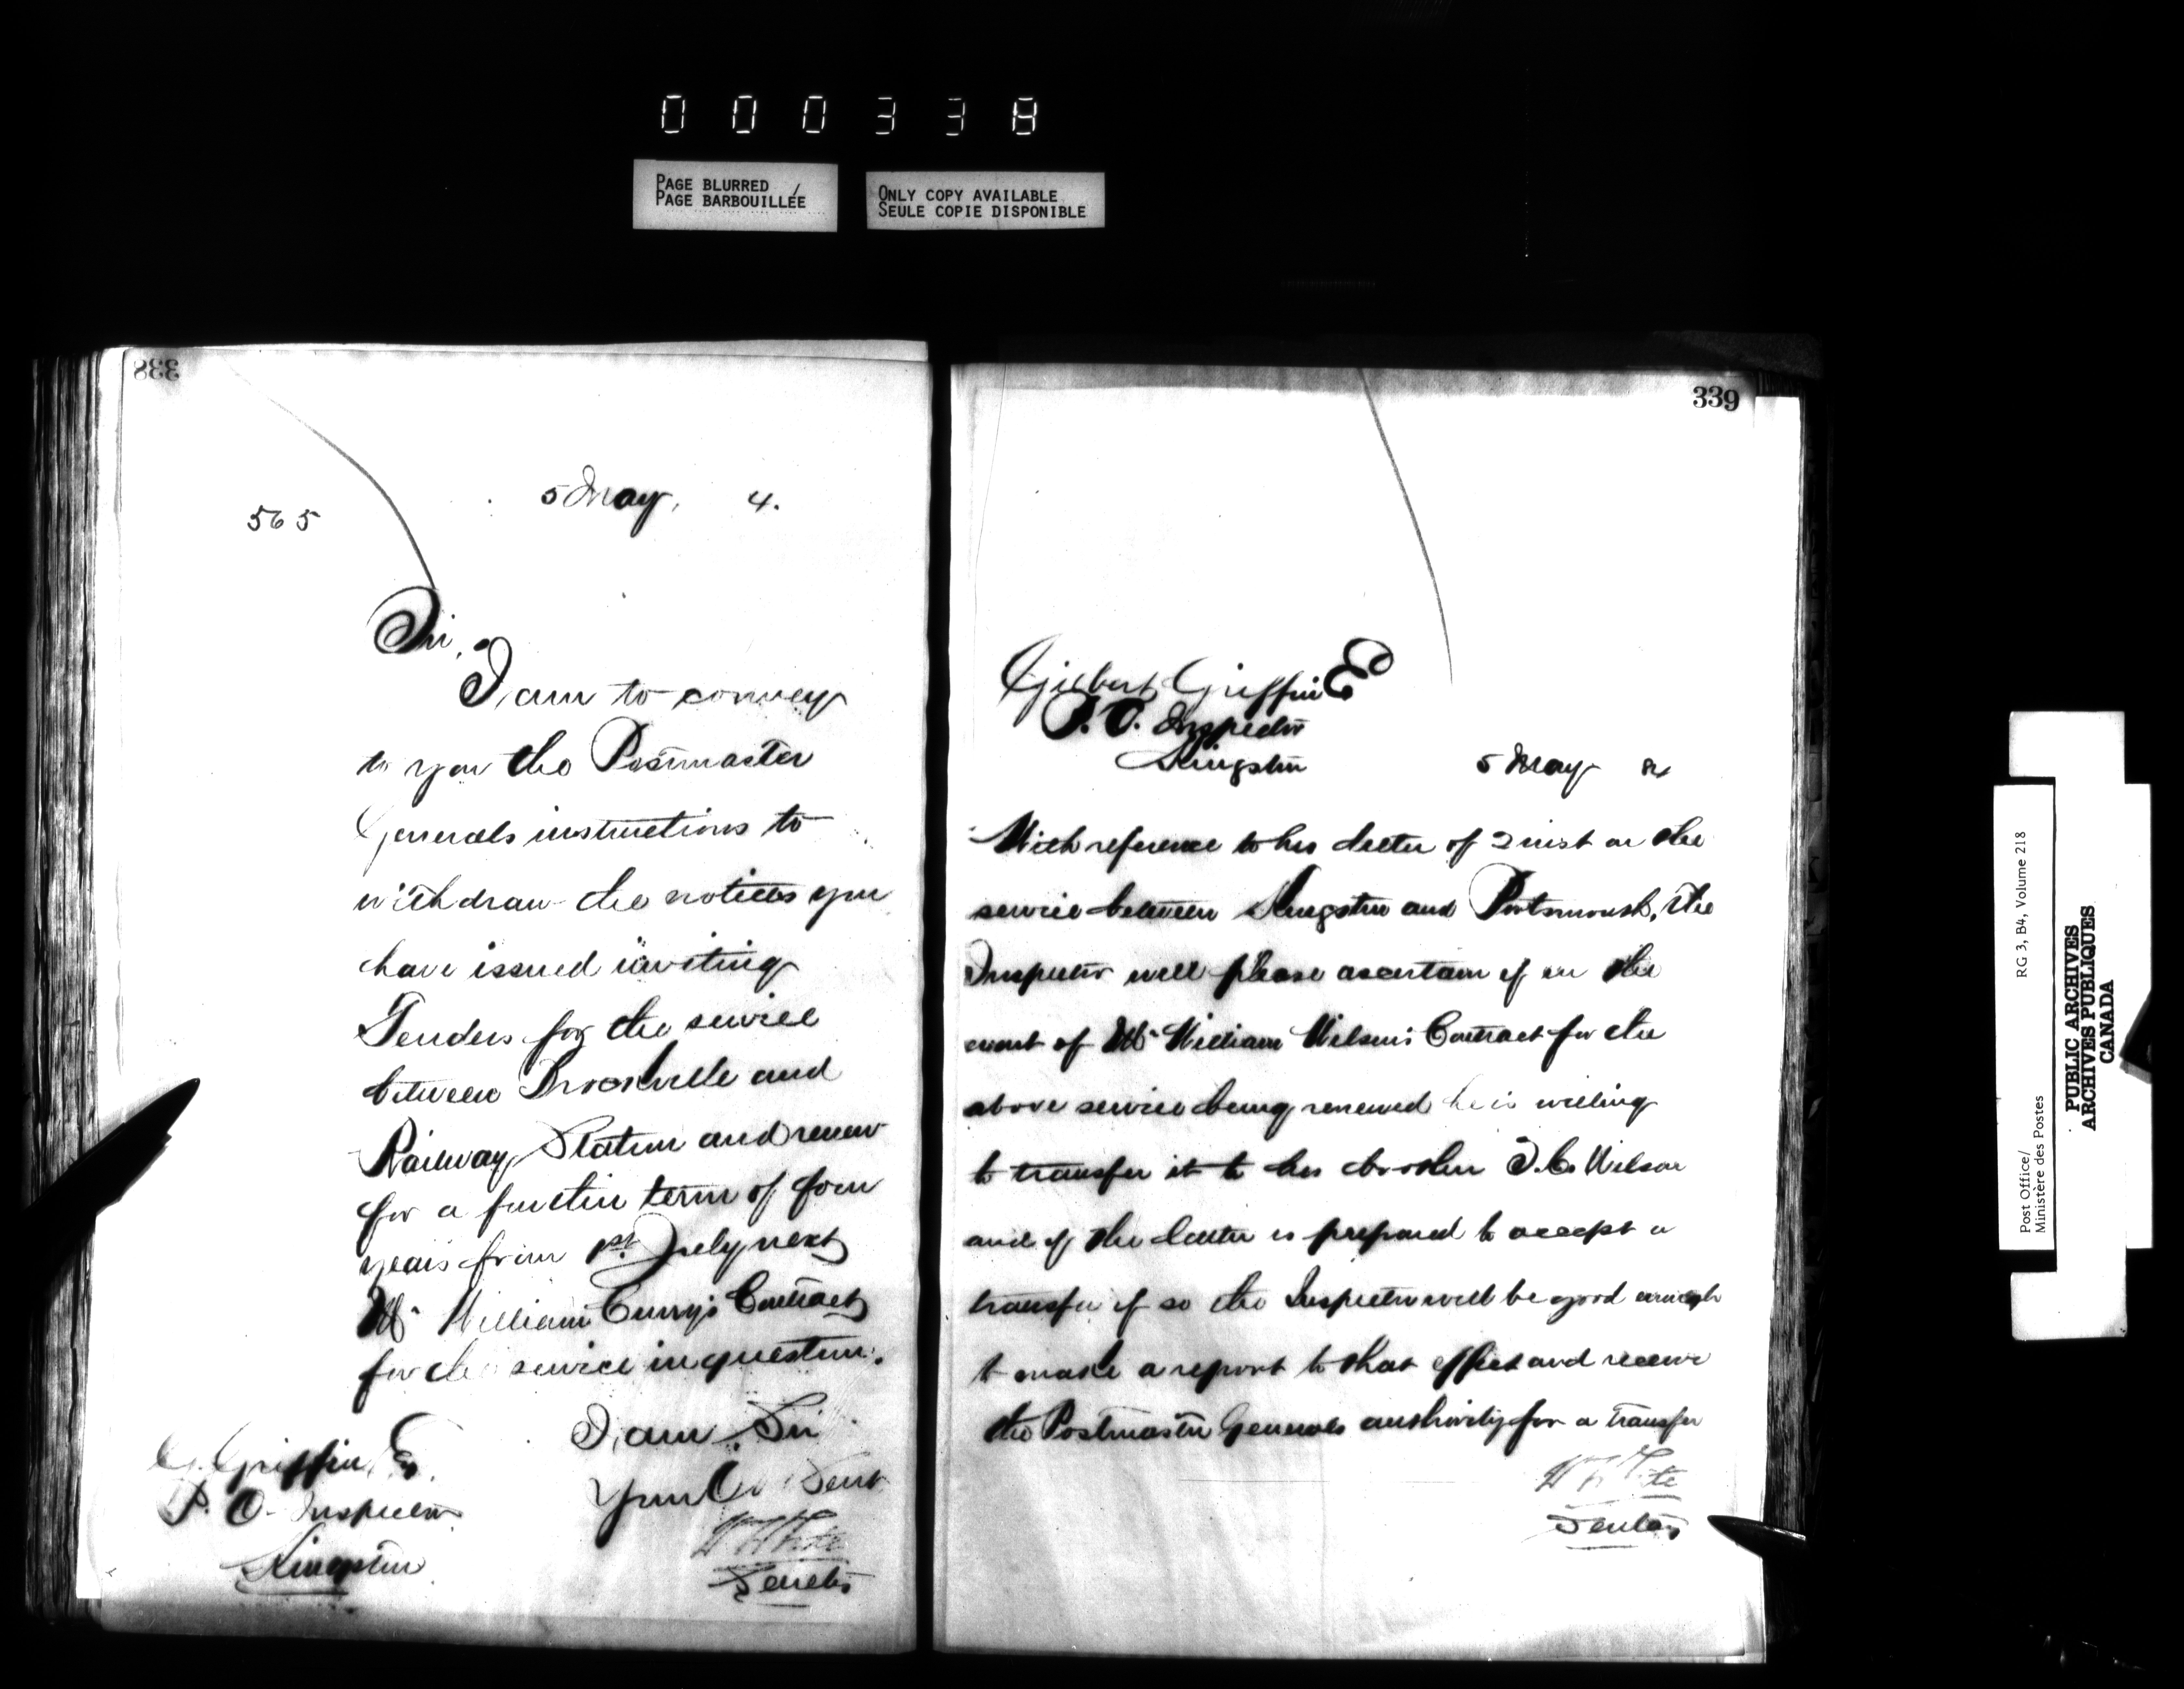 000338
PAGE BLURRED
PAGE BARBOUILLÉE
ONLY COPY AVAILABLE
SEULE COPIE DISPONIBLE
338
565
5 May, 4.
Sir,
I am to convey
to you the Postmaster
Generals instructions to
withdraw the notices you
have issued inviting
Tenders for the service
between Brockville and
Railway Station and renew
for a further term of four
years from 1st July next
Mr William Currys Contract
for the service in question.
I am, Sir
Your Ob Servt
W H Hite
Secretary
G. Griffin, E
P. O. Inspector
Kingston
339
Gilbert Griffin E
P. O. Inspector
Kingston
5 May
With reference to his letter of 2 inst on the
service between Kingston and Portsmouth, the
Inspector will please ascertain if in the
event of Mr William Wilson's Contract for the
above service being renewed he is willing
to transfer it to his brother T. C. Wilson
and if the latter is prepared to accept a
transfer if so the Inspector will be good enough
to make a report to that effect and receive
the Postmaster Generals authority for a transfer
Secretary
Post Office/ RG 3, B4, Volume 218
Ministère des Postes
PUBLIC ARCHIVES
ARCHIVES PUBLIQUES
CANADA